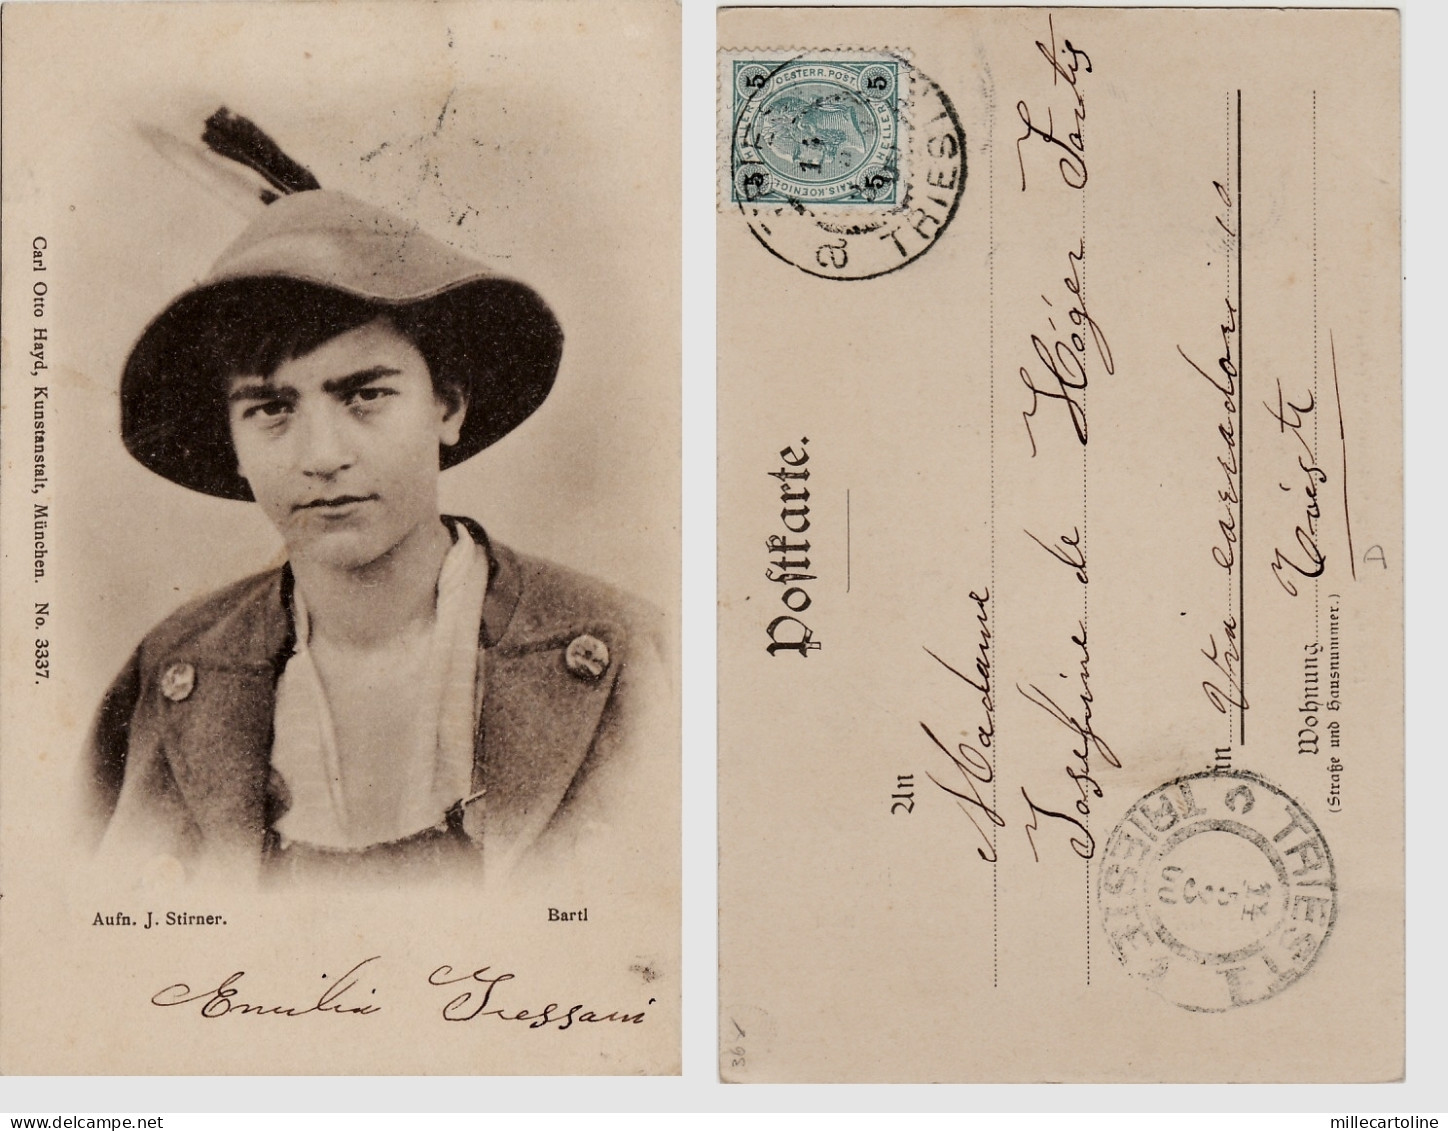 Carl Otto Hayd, Kunstanstalt, München. No. 3337.
Aufn. J. Stirner.
Bartl
Emilia
5 5
OESTERR. POST
HELLER HELLER
5 5
KAIS. KOENIGL
TRIEST
TRIESTE
a
Postkarte.
An
Madame
Josephine de Höger
in
Via
Wohnung
(Straße und Hausnummer.)
TRIESTE c TRIEST
14
3
00
D
36
delcampe.net
millecartoline